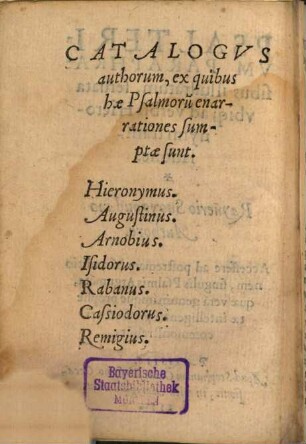 CATALOGVS
authorum, ex quibus
hæ Psalmorũ enar-
rationes sum-
ptæ sunt.
Hieronymus.
Augustinus.
Arnobius.
Isidorus.
Rabanus.
Cassiodorus.
Remigius.
Bayerische
Staatsbibliothek
MÜNCHEN